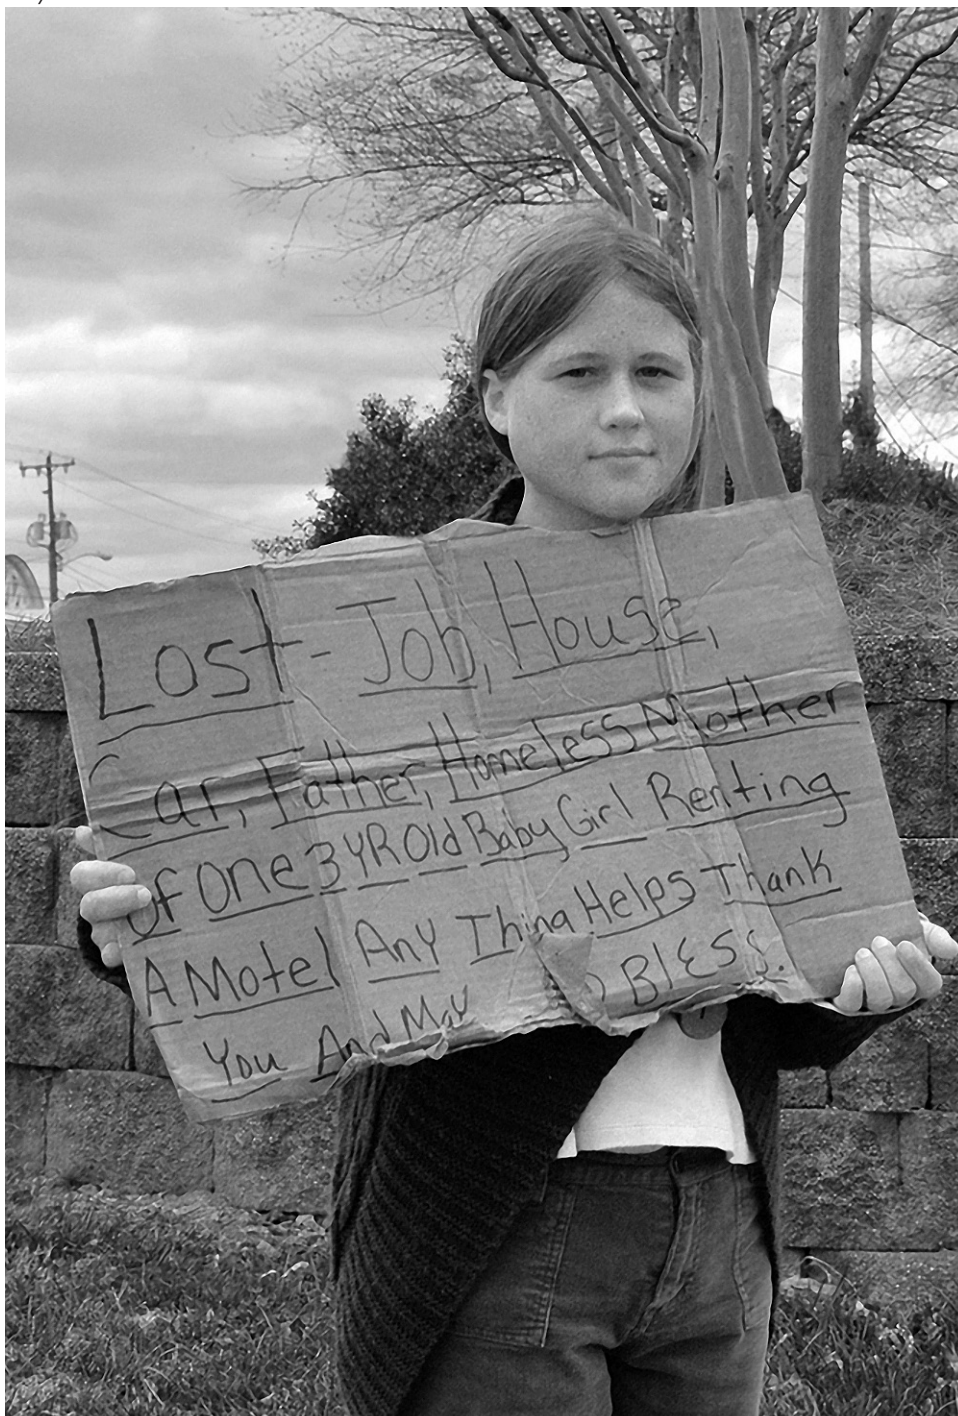 Lost - Job, House,
Car, Father, Homeless Mother
of One 3 YR Old Baby Girl Renting
A Motel Any Thing Helps Thank
You And May BlESS.